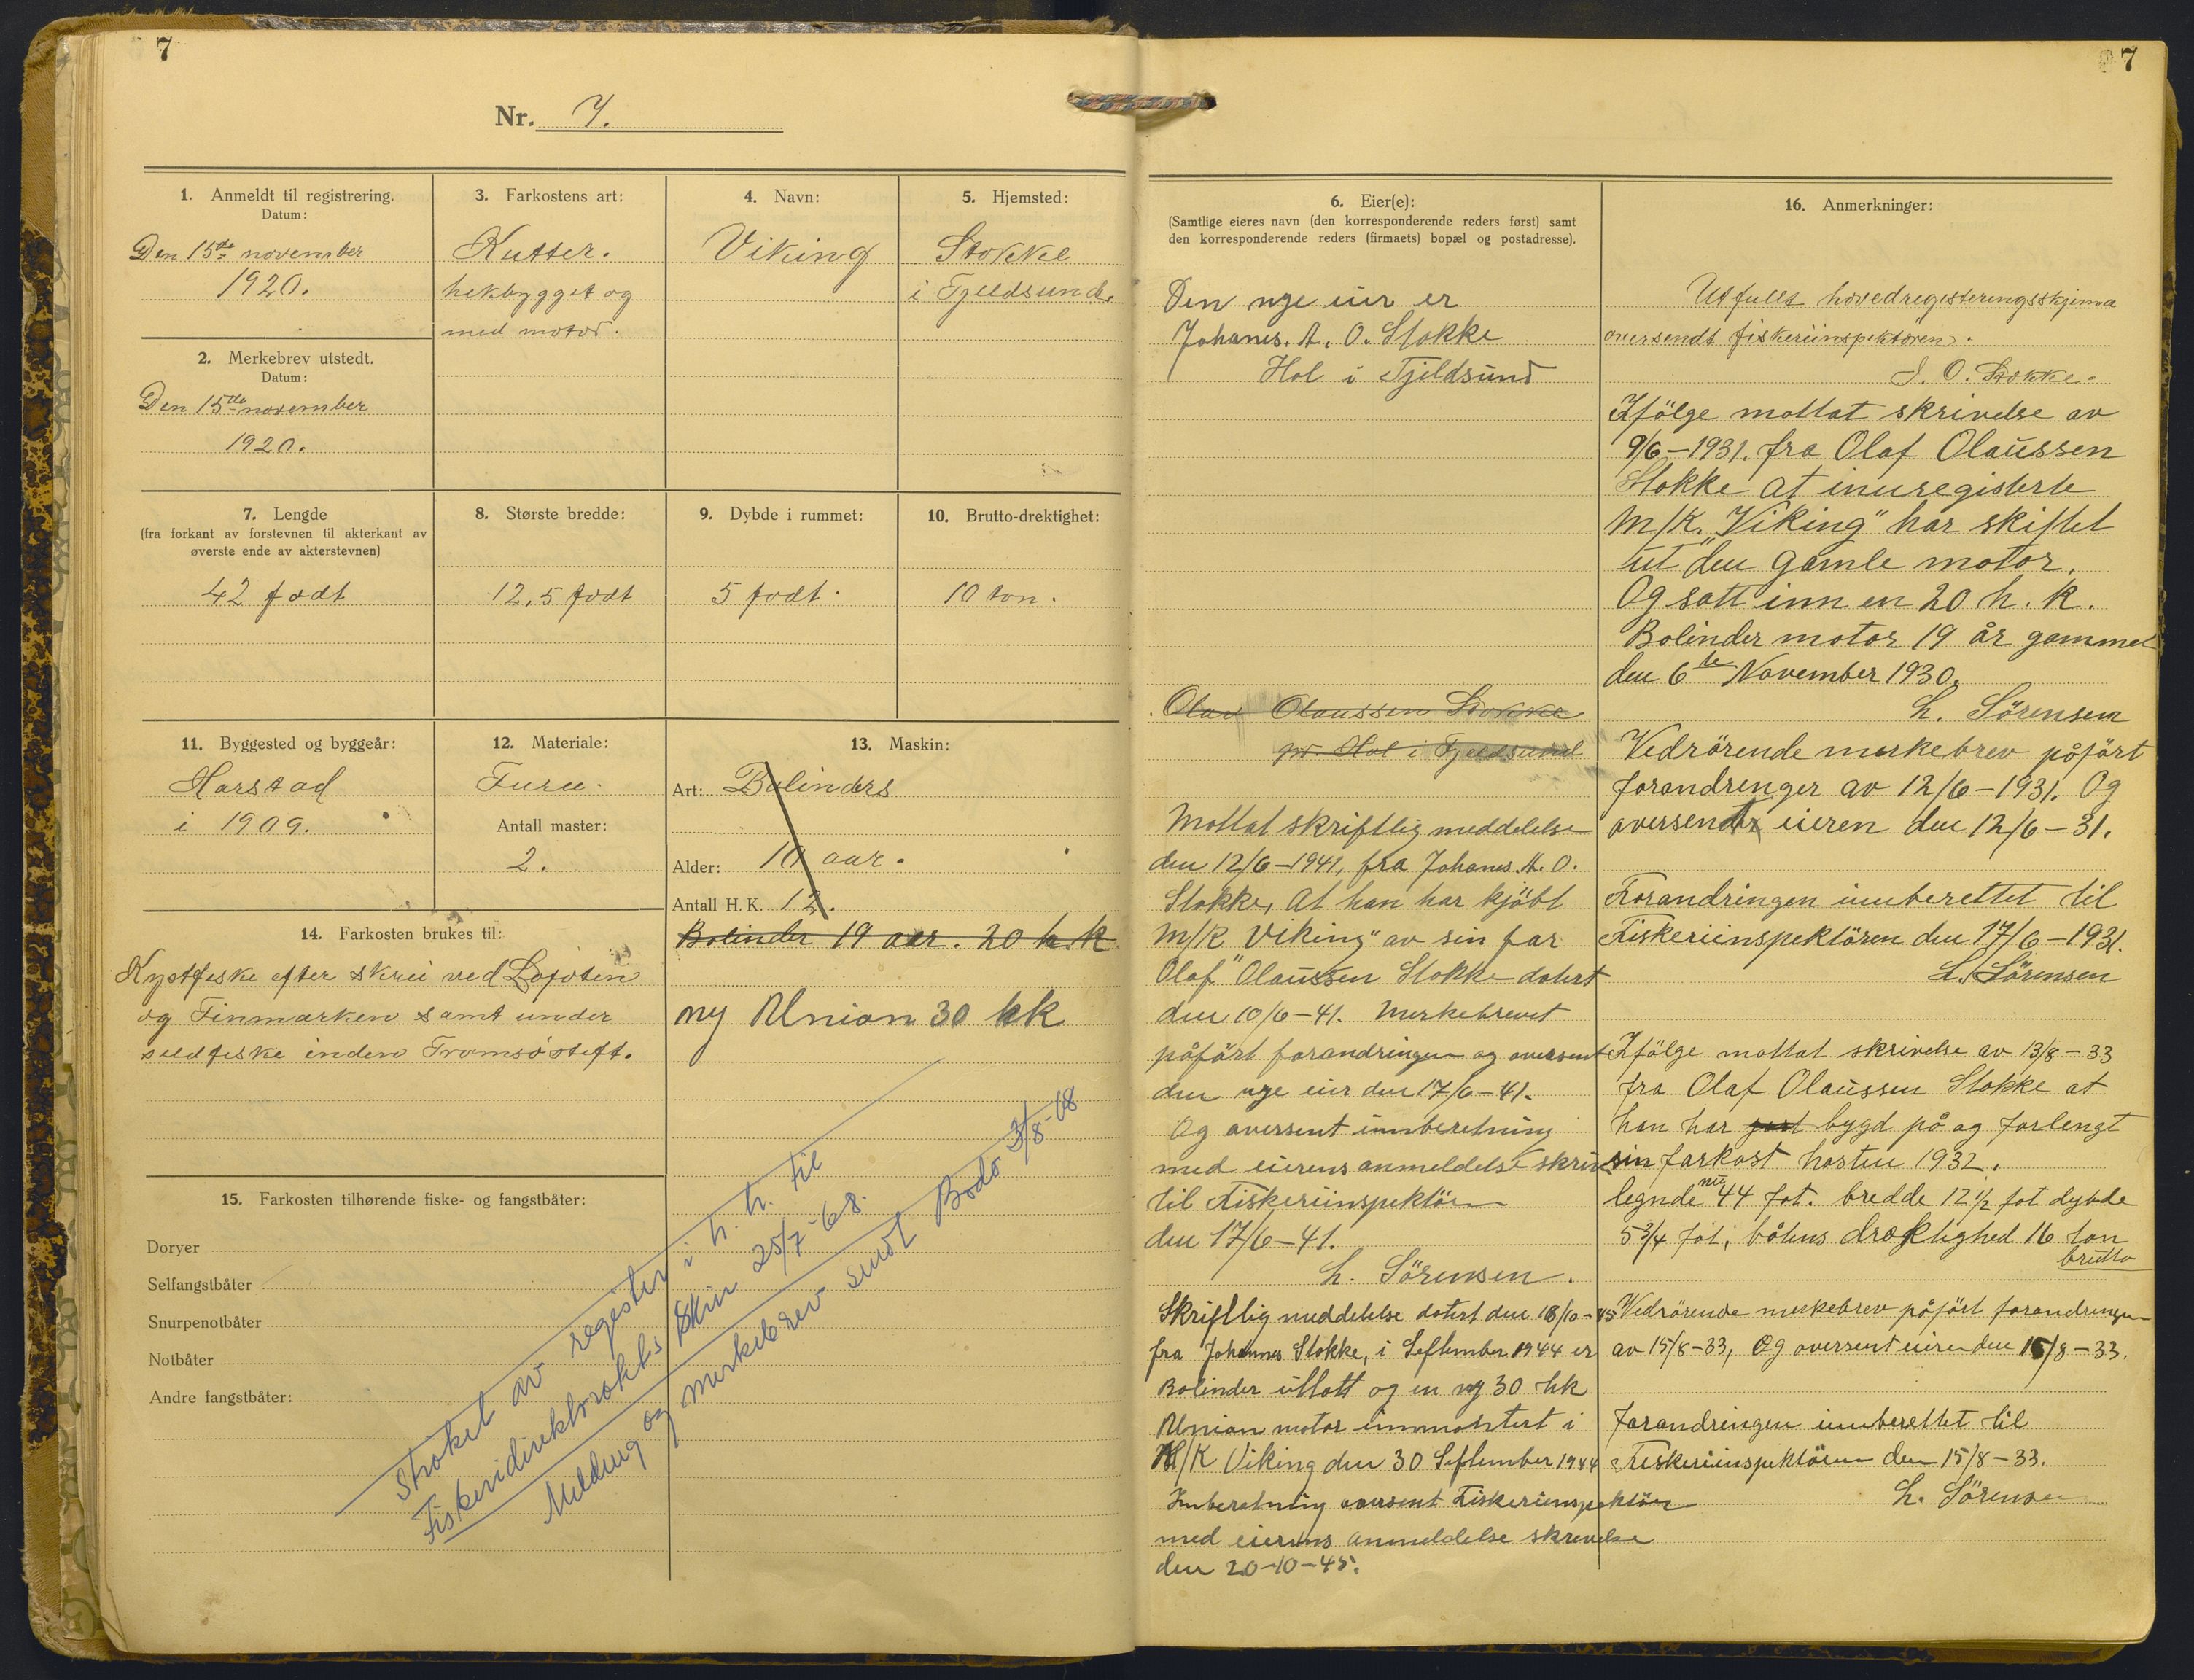 7
Nr. 7.
1. Anmeldt til registrering.
Datum:
Den 15de november
1920.
2. Merkebrev utstedt.
Datum:
Den 15de november
1920.
3. Farkostens art:
Kutter.
hekbygget og
med motor.
4. Navn:
Viking
5. Hjemsted:
Stokke
i Tjeldsund.
7. Lengde
(fra forkant av forstevnen til akterkant av
øverste ende av akterstevnen)
42 fodt
8. Største bredde:
12,5 fodt
9. Dybde i rummet:
5 fodt.
10. Brutto-drektighet:
10 ton.
11. Byggested og byggeår:
Harstad
i 1909.
12. Materiale:
Furu.
Antall master:
2.
13. Maskin:
Art: Bolinders
Alder: 10 aar.
Antall H. K. 12.
Bolinder 19 aar. 20 h.k
ny Union 30 hk
14. Farkosten brukes til:
Kystfiske efter skrei ved Lofoten
og Finmarken samt under
sildfiske inden Tromsö stift.
15. Farkosten tilhørende fiske- og fangstbåter:
Doryer
Selfangstbåter
Snurpenotbåter
Notbåter
Andre fangstbåter:
Strøket av register i h. h. til
Fiskeridirektorakts Skriv 25/7-68.
Melding og merkebrev sendt Bodö 3/8-68
7
6. Eier(e):
(Samtlige eieres navn (den korresponderende reders først) samt
den korresponderende reders (firmaets) bopæl og postadresse).
Den nye eier er
Johanes. A. O. Stokke
Hol i Tjeldsund
Olav Olaussen Stokke
pr. Hol i Tjeldsund
Mottat skriftlig meddelelse
den 12/6-1941, fra Johanes. A. O.
Stokke, At han har kjöbt
M/K „Viking" av sin far
Olaf Olaussen Stokke datert
den 10/6-41. Merkebrevet
påfört forandringen og oversent
den nye eier den 17/6-41.
Og oversent innberetning
med eierens anmeldelse skriv
til Fiskeriinspektören
den 17/6-41.
L. Sörensen.
Skriftlig meddelelse datert den 18/10-45
fra Johannes Stokke, i September 1944 er
Bolinder uttatt og en ny 30 hk
Union motor innmontert i
M/K Viking den 30 September 1944
Innberetning oversent Fiskeriinspektören
med eierens anmeldelse skrevelse
den 20-10-45.
16. Anmerkninger:
Utfullt hovedregisteringsskjema
oversendt fiskeriinspektören.
J. O. Stokke.
Ifölge mottat skrivelse av
9/6-1931. fra Olaf Olaussen
Stokke at inuregisterte
M/K. „Viking" har skiftet
ut den gamle motor.
Og satt inn en 20 h. k.
Bolinder motor 19 år gammel
den 6te November 1930.
L. Sörensen
Vedrörende merkebrev påfört
forandringer av 12/6-1931. Og
oversendt eieren den 12/6-31.
Forandringen innberettet til
Fiskeriinspektören den 17/6-1931.
L. Sörensen
Ifölge mottat skrivelse av 13/8-33
fra Olaf Olaussen Stokke at
han har bygd på og forlengt
sin farkost hösten 1932.
legnde nu 44 fot. bredde 12 1/2 fot dybde
5 3/4 fot, båtens dræktighed 16 ton
brutto
Vedrörende merkebrev påfört forandringen
av 15/8-33, Og oversent eieren den 15/8-33.
Forandringen innberettet til
Fiskeriinspektören den 15/8-33.
L. Sörensen